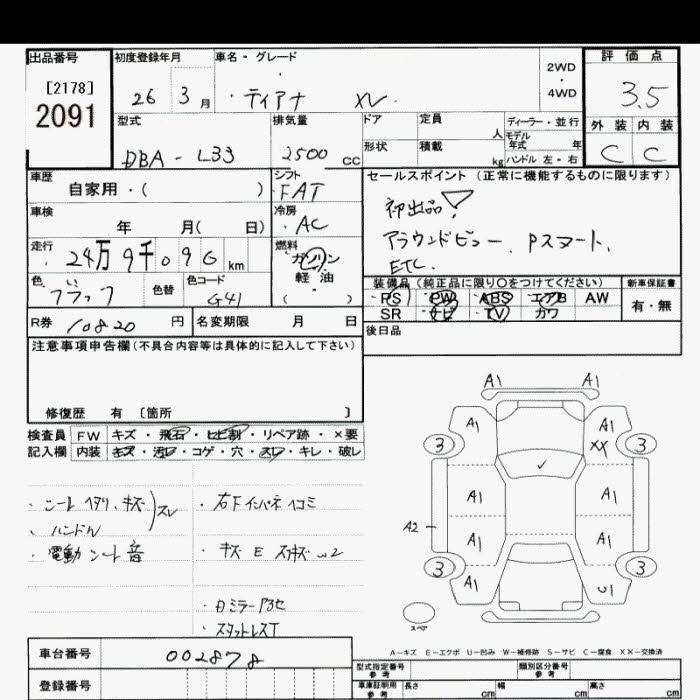 出品番号
[2178]
2091
初度登録年月
26 3月
車名・グレード
・ティアナ XV.
2WD
・
4WD
評価点
3.5
型式
DBA - L33
排気量
2500 CC
ドア
定員
人
形状
積載
kg
ディーラー・並行
モデル年式 年
ハンドル 左・右
外装 内装
C C
車歴
自家用・( )
シフト
・FAT
セールスポイント (正常に機能するものに限ります)
初出品!
アラウンドビュー. Pスタート.
ETC.
車検
年 月( 日)
冷房
・AC
走行
24万9千096 km
燃料
ガソリン
軽・油
・( )
色
ブラック
色替
色コード
G41
装備品 (純正品に限り○をつけてください)
PS・PW・ABS・エアB AW
SR ナビ・TV カワ
新車保証書
有・無
R券 10820 円
名変期限 月 日
後日品
注意事項申告欄(不具合内容等は具体的に記入して下さい)
修復歴 有 [箇所 ]
検査員 FW キズ・飛石・ヒビ割・リペア跡・×要
記入欄 内装 キズ・汚レ・コゲ・穴・スレ・キレ・破レ
・シートヘタリ、キズ)スレ
・ハンドル
・電動シート音
・右下インパネヘコミ
・キズ E スリキズ w2
・スタットレスT
A1 A1
A1 A1
XX
3 3
A1 A1
A2
A1 A1
3 3
A1 U1
スペア
A-キズ E-エクボ U-凹み W-補修跡 S-サビ C-腐食 XX-交換済
車台番号 002878
登録番号
型式指定番号
参考
類別区分番号
参考
車庫証明用
参考
長さ cm 幅 cm 高さ cm